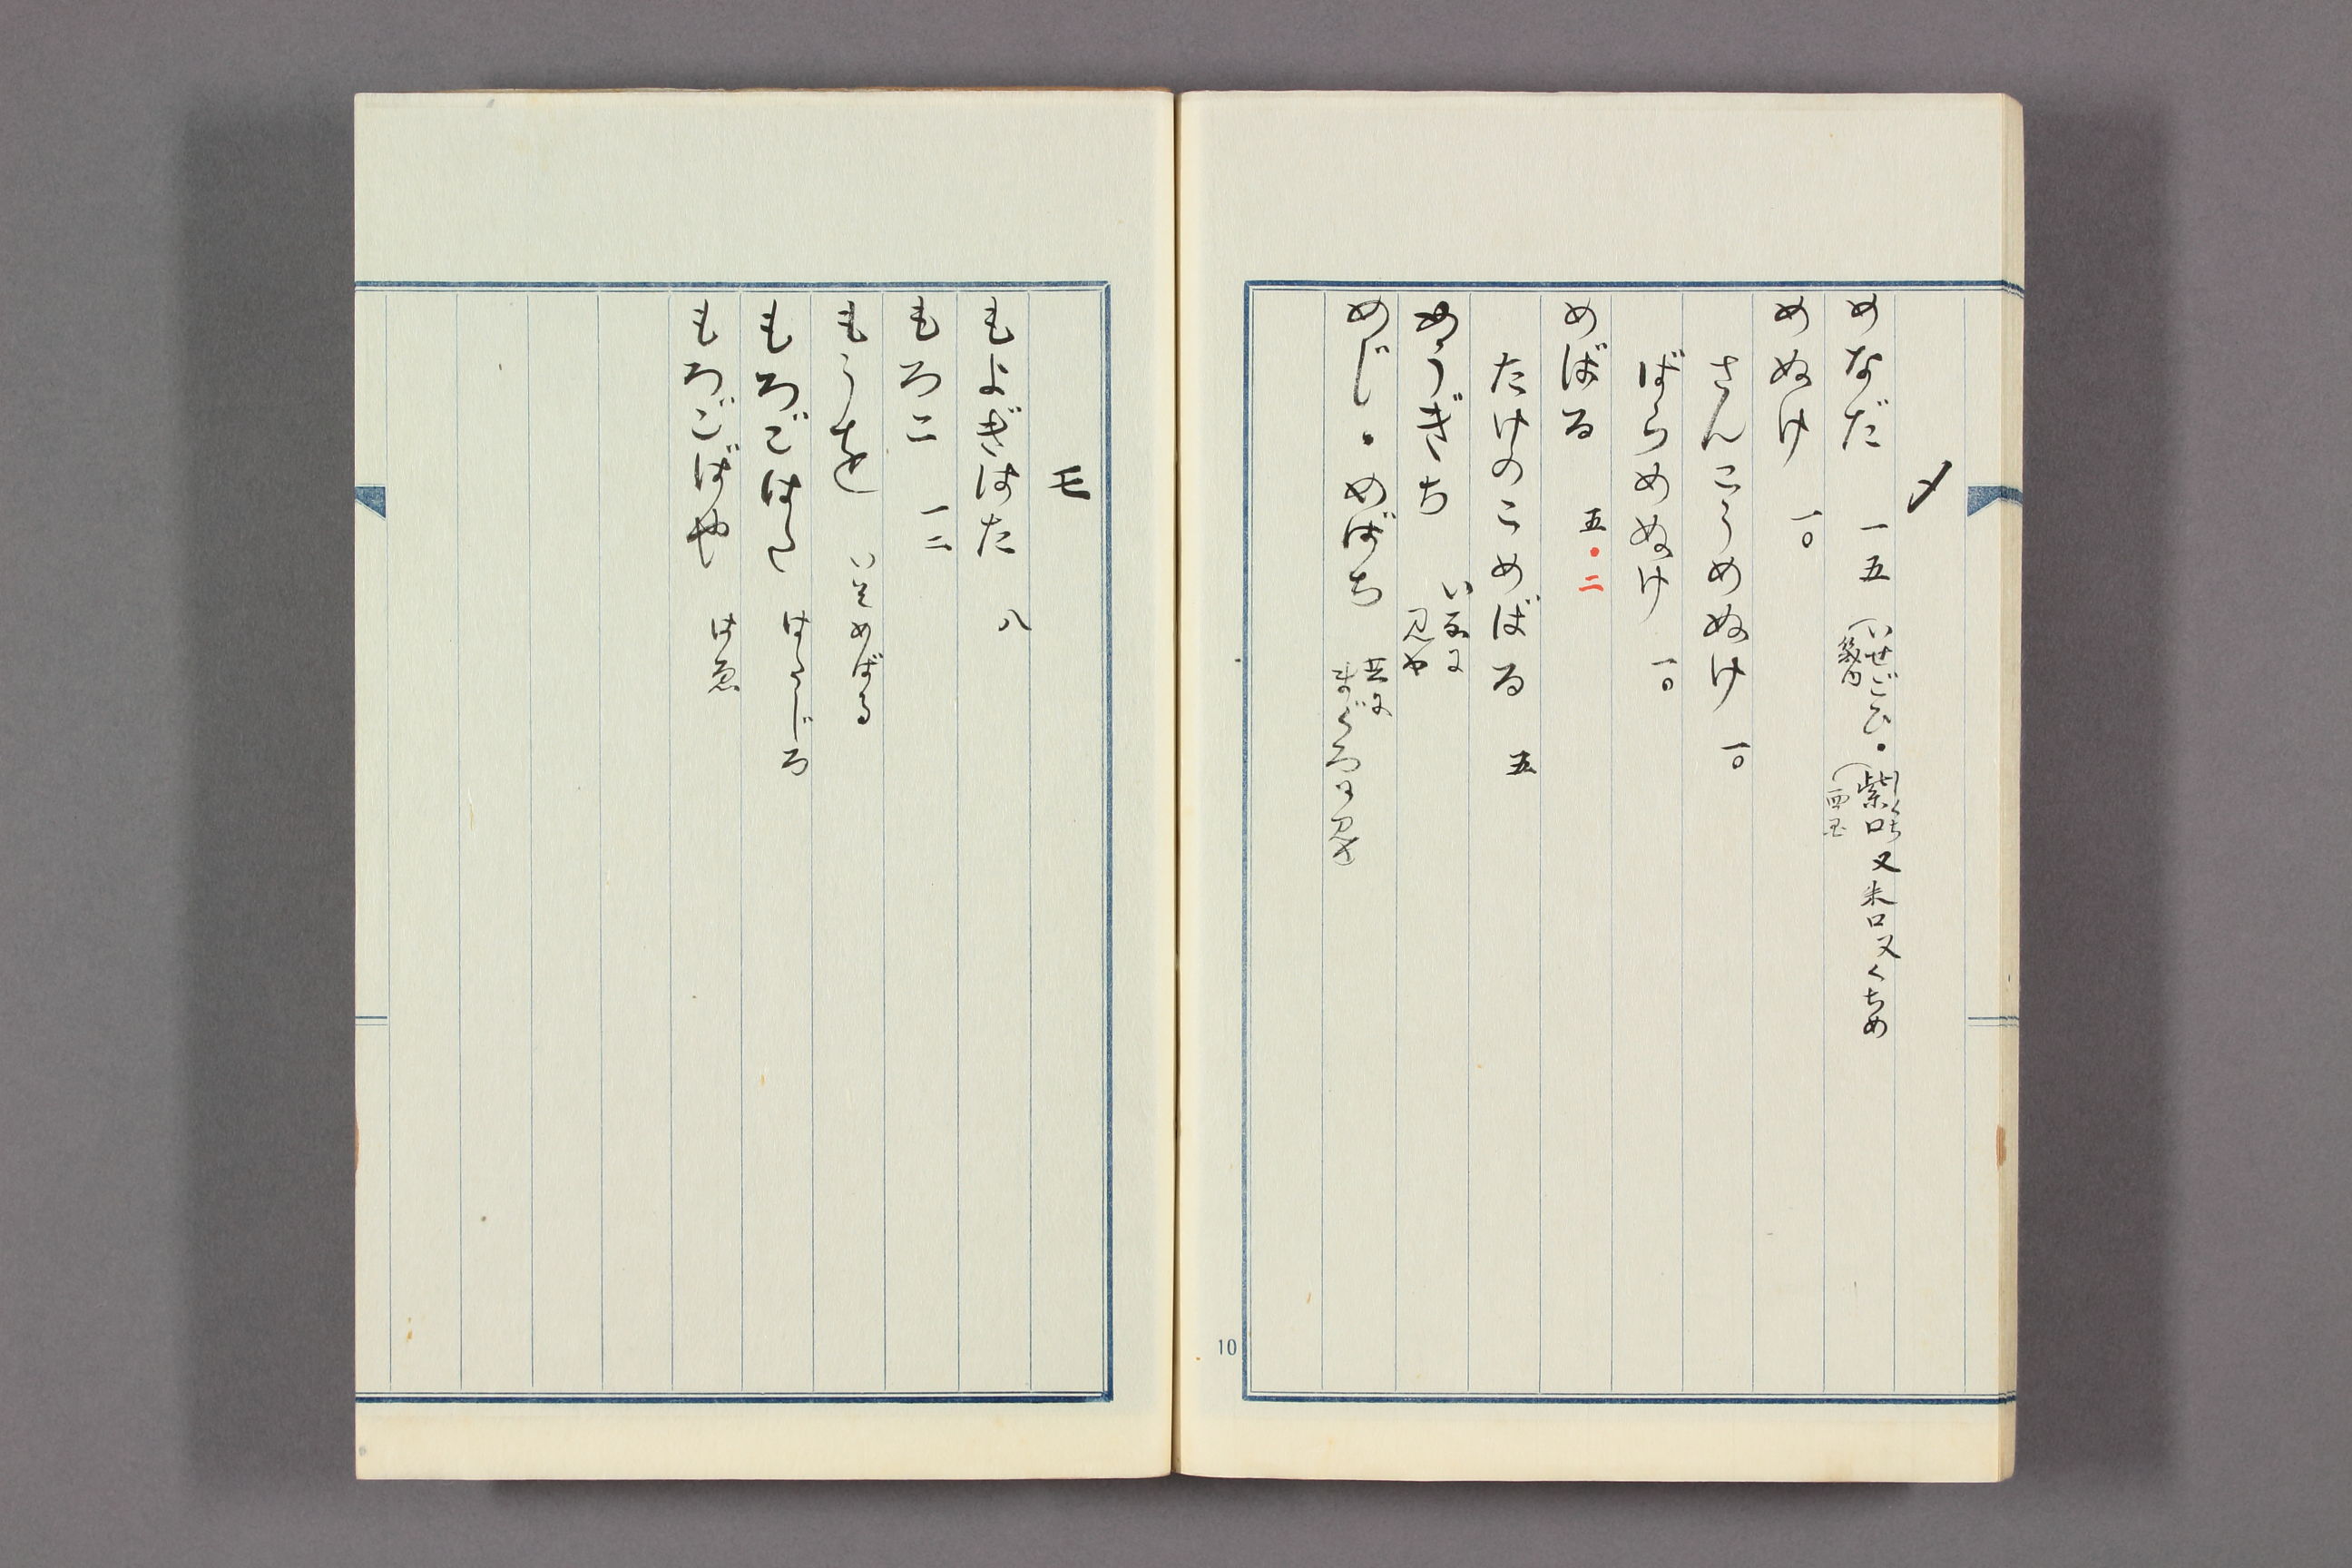 メ
めなだ 一五 (いせごひ・(紫口 又朱口又くちめ
畿内
西国
めぬけ 一〇
さんこうめぬけ 一〇
ばらめぬけ 一〇
めばる 五・二
たけのこめばる 五
めうぎち
めじ・めばち 共ニ
まぐろニ見ゆ
10
モ
もよぎはた 八
もろこ 一二
もうを いそめばる
もろこはえ
もろごばや はゑ